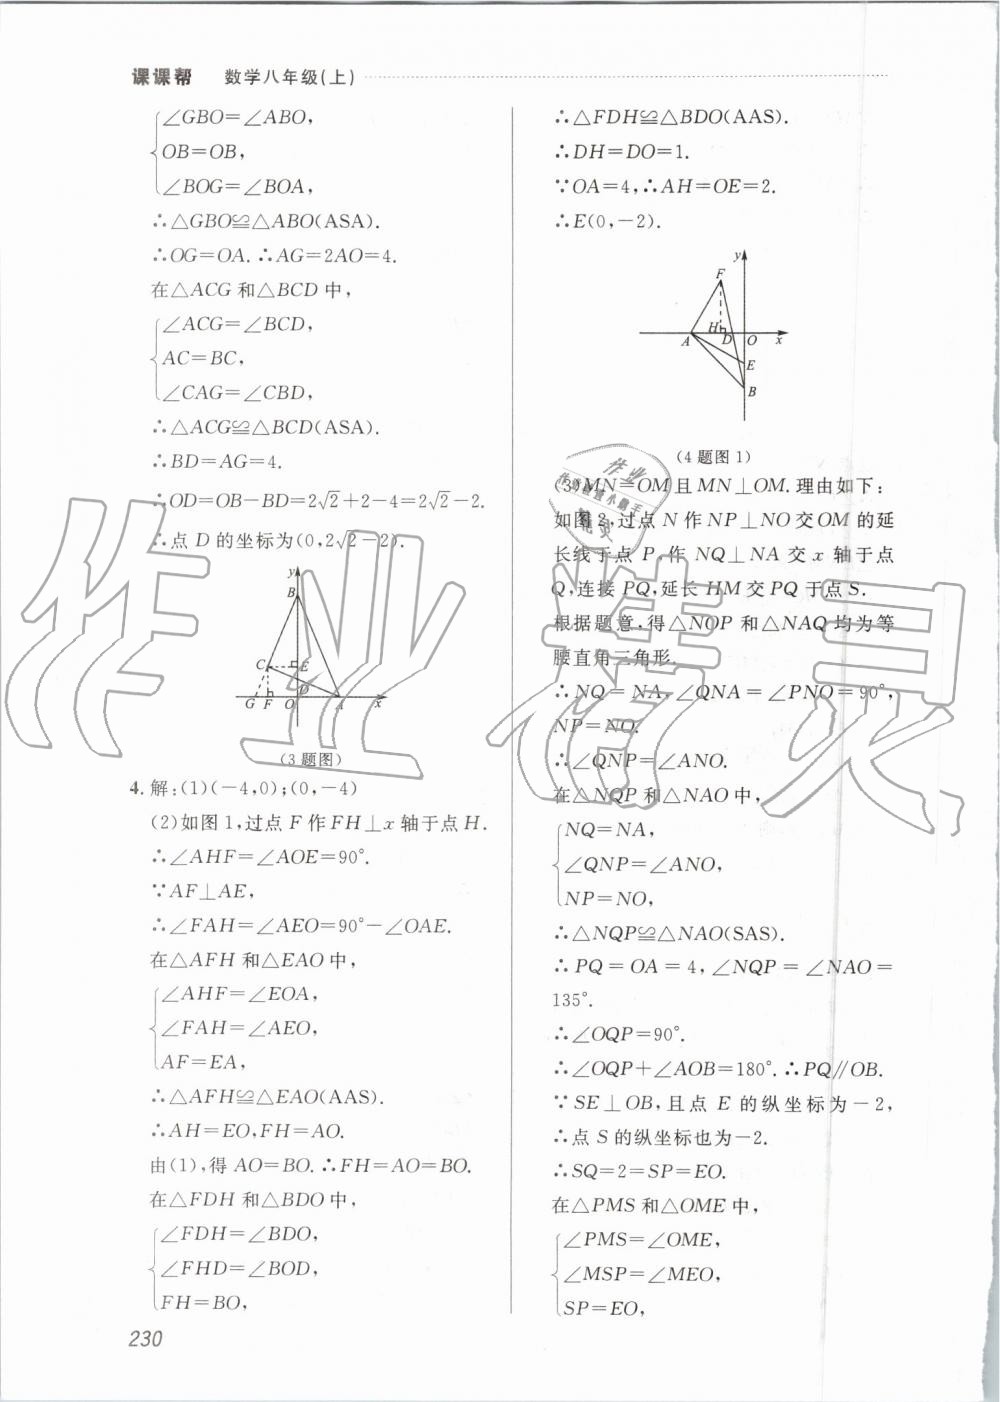 课课帮 数学八年级(上)
∠GBO=∠ABO,
OB=OB,
∠BOG=∠BOA,
∴△GBO≌△ABO(ASA).
∴OG=OA.∴AG=2AO=4.
在△ACG和△BCD中,
∠ACG=∠BCD,
AC=BC,
∠CAG=∠CBD,
∴△ACG≌△BCD(ASA).
∴BD=AG=4.
∴OD=OB-BD=2√2+2-4=2√2-2.
∴点D的坐标为(0,2√2-2).
y
B
C E
D
G F O A x
(3题图)
4.解:(1)(-4,0);(0,-4)
(2)如图1,过点F作FH⊥x轴于点H.
∴∠AHF=∠AOE=90°.
∵AF⊥AE,
∴∠FAH=∠AEO=90°-∠OAE.
在△AFH和△EAO中,
∠AHF=∠EOA,
∠FAH=∠AEO,
AF=EA,
∴△AFH≌△EAO(AAS).
∴AH=EO,FH=AO.
由(1),得AO=BO.∴FH=AO=BO.
在△FDH和△BDO中,
∠FDH=∠BDO,
∠FHD=∠BOD,
FH=BO,
230
∴△FDH≌△BDO(AAS).
∴DH=DO=1.
∵OA=4,∴AH=OE=2.
∴E(0,-2).
y
F
H
A D O x
E
B
(4题图1)
(3)MN=OM且MN⊥OM.理由如下:
如图2,过点N作NP⊥NO交OM的延
长线于点P,作NQ⊥NA交x轴于点
Q,连接PQ,延长HM交PQ于点S.
根据题意,得△NOP和△NAQ均为等
腰直角三角形.
∴NQ=NA,∠QNA=∠PNO=90°,
NP=NO.
∴∠QNP=∠ANO.
在△NQP和△NAO中,
NQ=NA,
∠QNP=∠ANO,
NP=NO,
∴△NQP≌△NAO(SAS).
∴PQ=OA=4,∠NQP=∠NAO=
135°.
∴∠OQP=90°.
∴∠OQP+∠AOB=180°.∴PQ∥OB.
∵SE⊥OB,且点E的纵坐标为-2,
∴点S的纵坐标也为-2.
∴SQ=2=SP=EO.
在△PMS和△OME中,
∠PMS=∠OME,
∠MSP=∠MEO,
SP=EO,
作业精灵